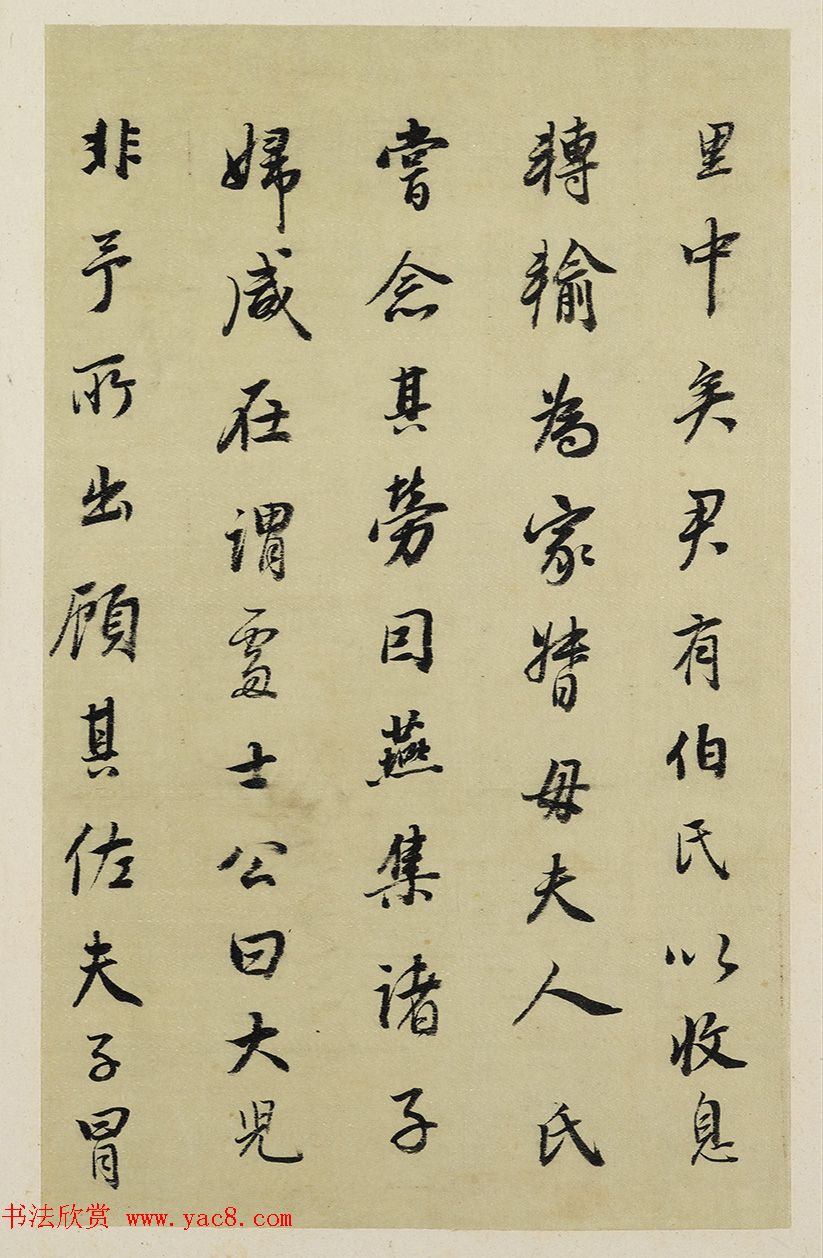 里中矣君有伯氏以收息
轉輸為家督母夫人氏
嘗念其勞因燕集諸子
婦咸在謂處士公曰大兒
非予所出顧其佐夫子冒
书法欣赏 www.yac8.com